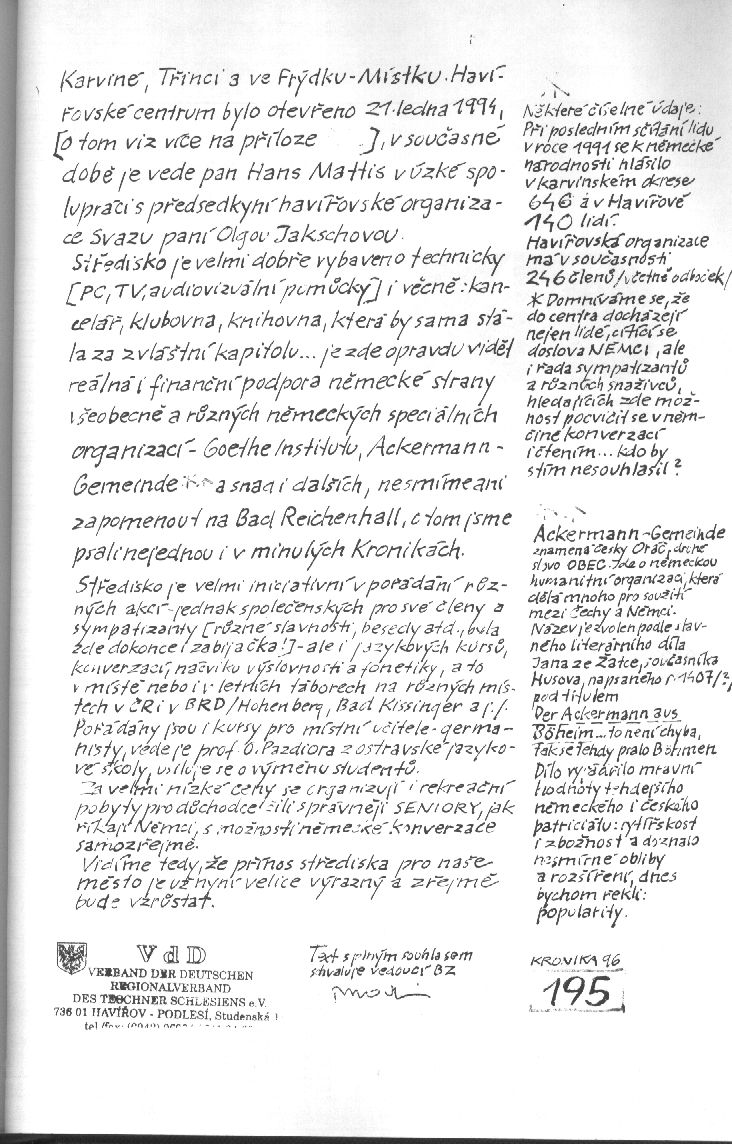 Karviné, Třinci a ve Frýdku-Místku. Haví-
řovské centrum bylo otevřeno 21. ledna 1994,
[o tom viz více na příloze ], v současné
době je vede pan Hans Mattis v úzké spo-
lupraci s předsedkyní havířovské organiza-
ce Svazu paní Olgou Jakschovou.
Středisko je velmi dobře vybaveno technicky
[PC, TV, audiovizuální pomůcky] i věcně: kan-
celář, klubovna, knihovna, která by sama stá-
la za zvláštní kapitolu... je zde opravdu vidět
reálná i finanční podpora německé strany
všeobecně a různých německých speciálních
organizací - Goethe Institutu, Ackermann-
Gemeinde a snad i dalších, nesmíme ani
zapomenout na Bad Reichenhall, o tom jsme
psali nejednou i v minulých Kronikách.
Středisko je velmi iniciativní v pořádání růz-
ných akcí - jednak společenských pro své členy a
sympatizanty [různé slavnosti, besedy atd., byla
zde dokonce i zabijačka!] - ale i jazykových kursů,
konverzací, nácviku výslovnosti a fonetiky, a to
v místě nebo i v letních táborech na různých mís-
tech v ČR i v BRD/Hohenberg, Bad Kissinger a j./.
Pořádány jsou i kursy pro místní učitele - germa-
nisty, vede je prof. O. Pazdiora z ostravské jazyko-
vé školy, usiluje se o výměnu studentů.
Za velmi nízké ceny se organizují i rekreační
pobyty pro důchodce čili správněji SENIORY, jak
říkají Němci, s možností německé konverzace
samozřejmě.
Vidíme tedy, že přínos střediska pro naše
město je už nyní velice výrazný a zřejmě
bude vzrůstat.
Některé číselné údaje:
Při posledním sčítání lidu
v roce 1991 se k německé
národnosti hlásilo
v karvinském okrese
646 a v Havířově
140 lidí.
Havířovská organizace
má v současnosti
246 členů /včetně odboček/
* Domníváme se, že
do centra docházejí
nejen lidé, cítící se
doslova NĚMCI, ale
i řada sympatizantů
a různých snaživců,
hledajících zde mož-
nost pocvičit se v něm-
čině konverzací
i čtením... kdo by
s tím nesouhlasil?
Ackermann-Gemeinde
znamená česky Oráč, druhé
slovo OBEC. Jde o německou
humanitní organizaci, která
dělá mnoho pro soužití
mezi Čechy a Němci.
Název je zvolen podle slav-
ného literárního díla
Jana ze Žatce, současníka
Husova, napsaného r. 1407/?/
pod titulem
Der Ackermann aus
Böheim... to není chyba,
tak se tehdy psalo Böhmen
Dílo vyjádřilo mravní
hodnoty tehdejšího
německého i českého
patriciátu: rytířskost
i zbožnost a doznalo
nesmírné obliby
a rozšíření, dnes
bychom řekli:
popularity.
V d D
VERBAND DER DEUTSCHEN
REGIONALVERBAND
DES TESCHNER SCHLESIENS e.V.
736 01 HAVÍŘOV - PODLESÍ, Studenská 1
tel/fax:
Text s plným souhlasem
schvaluje vedoucí BZ
KRONIKA 96
195